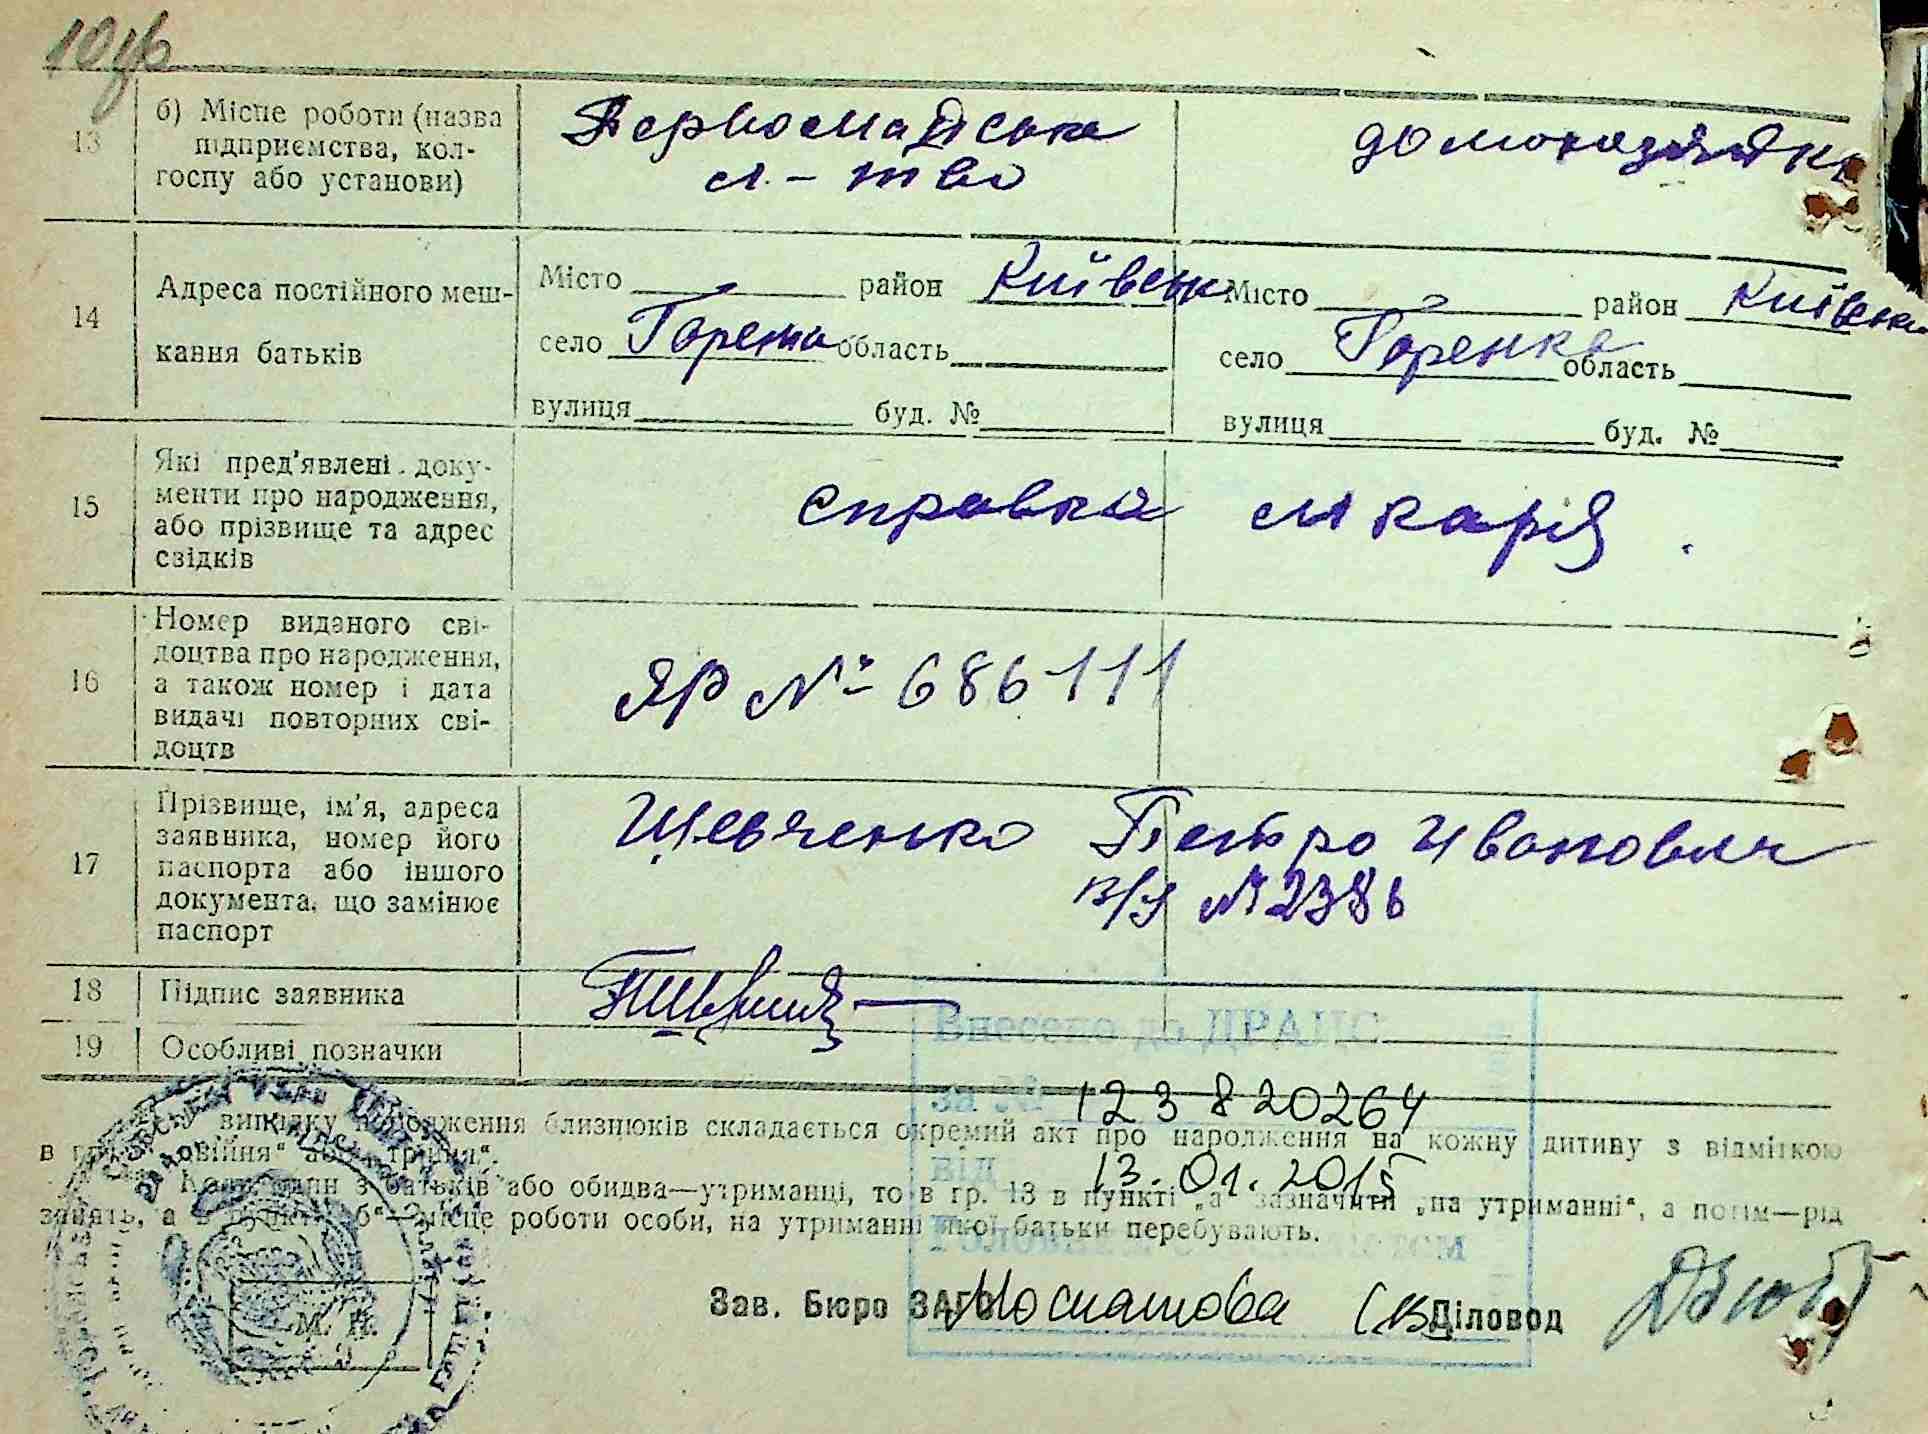 10 крб
13 б) Місце роботи (назва підприємства, колгоспу або установи)
Первомайське л-тво
домохазяйка
14 Адреса постійного мешкання батьків
Місто район Київськ
село Горенка область
вулиця буд. №
Місто район Київськ
село Горенка область
вулиця буд. №
15 Які пред'явлені документи про народження, або прізвище та адрес свідків
справка лікарія
16 Номер виданого свідоцтва про народження, а також номер і дата видачі повторних свідоцтв
ЯР № 686111
17 Прізвище, ім'я, адреса заявника, номер його паспорта або іншого документа, що замінює паспорт
Шевченко Петро Иванович
в/у № 2386
18 Підпис заявника
19 Особливі позначки
Внесено до ДРАЦС
за № 123 8 20264
від 13.01.2015
У випадку народження близнюків складається окремий акт про народження на кожну дитину з відміткою
в гр. „двійня“ або „трійня“.
Коли один з батьків або обидва—утриманці, то в гр. 13 в пункті „а“ зазначити „на утриманні“, а потім—рід
занять, а в пункті „б“—місце роботи особи, на утриманні якої батьки перебувають.
М. П.
Зав. Бюро ЗАГС Діловод